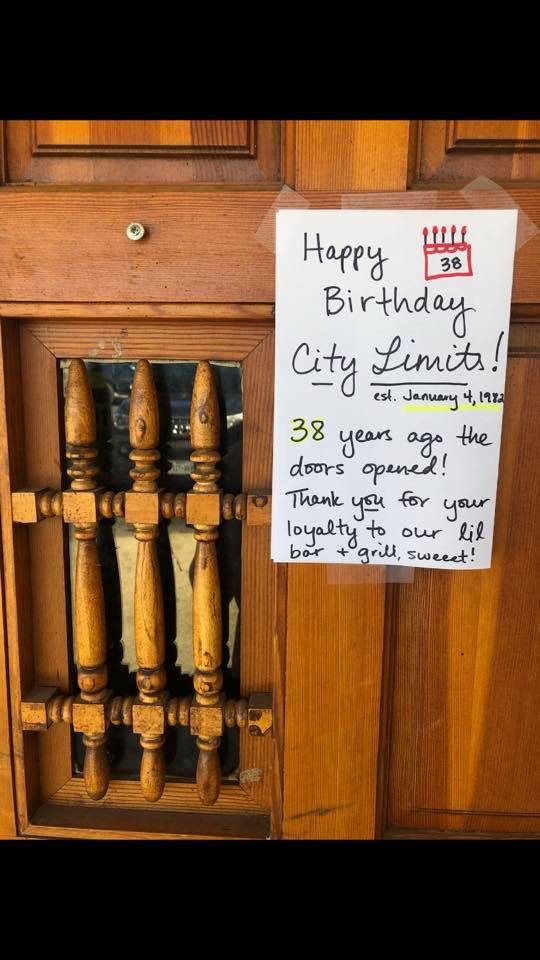 Happy
38
Birthday
City Limits!
est. January 4, 1982
38 years ago the
doors opened!
Thank you for your
loyalty to our lil
bar + grill, sweeet!